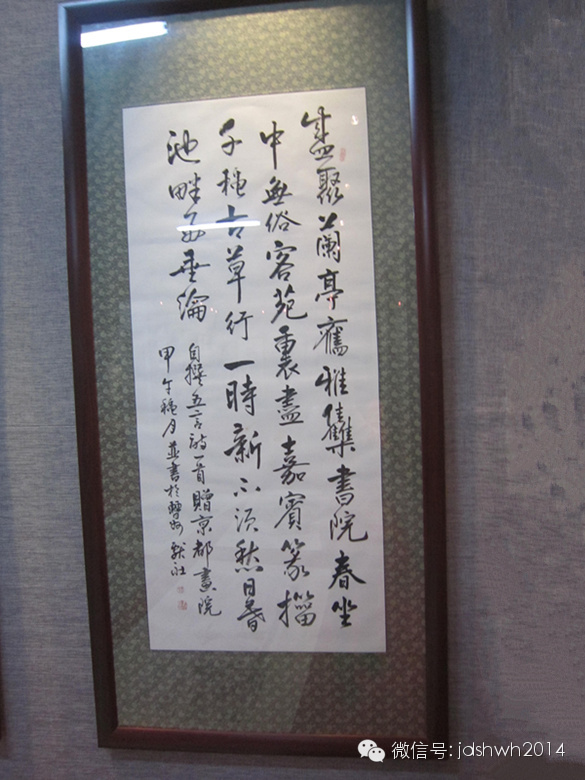 盛聚蘭亭舊雅集書院春坐
中無俗客苑裏盡嘉賓篆籀
千穐古草行一時新不須愁日暮
池畔垂綸
自撰五言詩一首贈京都畫院
甲午穐月並書於
微信号: jdshwh2014